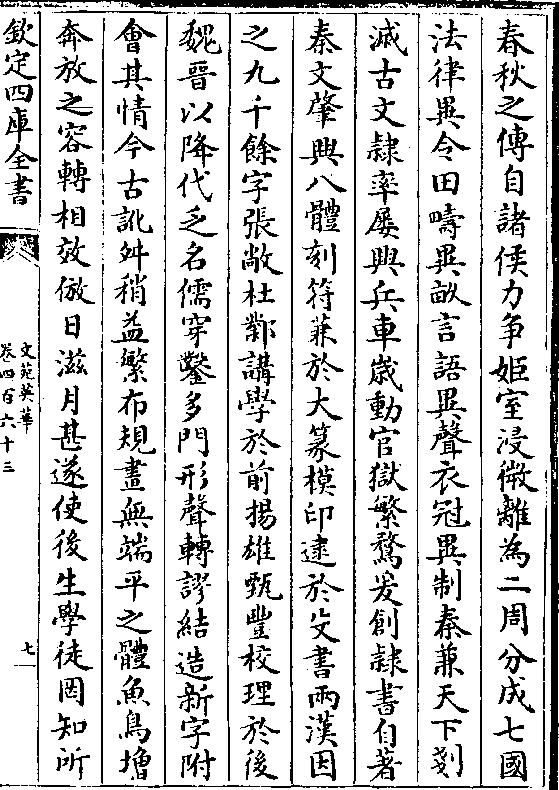 春秋之傳自諸侯力争姫室浸微離為二周分成七國
法律異令田疇異畝言語異聲衣冠異制秦兼天下剗
滅古文隷率屢興兵車歲動官獄繁騖爰創隷書自著
秦文肇興八體刻符兼於大篆模印逮於殳書兩漢因
之九千餘字張敞杜鄴講學於前揚雄甄豐校理於後
魏晉以降代乏名儒穿鑿多門形聲轉謬結造新字附
會其情今古訛舛稍益繁布規畫無端平之體魚鳥增
奔放之容轉相效倣日滋月甚遂使後生學徒罔知所
欽定四庫全書
文苑英華
卷四百六十三
七